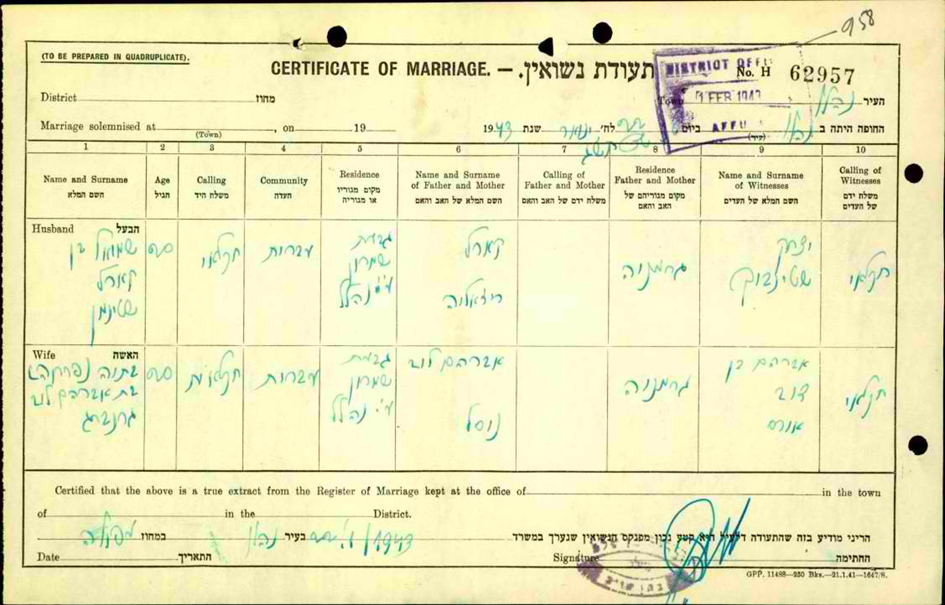 958
(TO BE PREPARED IN QUADRUPLICATE).
CERTIFICATE OF MARRIAGE. — תעודת נשואין.
DISTRICT OFFI
No. H 62957
FEB 1943
AFFU
District מחוז
Town העיר נהלל
Marriage solemnised at , on 19 1943 שנת ינואר לח' ביום החופה היתה ב נהלל
(Town) (עיר)
1 2 3 4 5 6 7 8 9 10
Name and Surname Age Calling Community Residence Name and Surname of Father and Mother Calling of Father and Mother Residence Father and Mother Name and Surname of Witnesses Calling of Witnesses
השם המלא הגיל משלח היד העדה מקום מגוריו או מגוריה השם המלא של האב והאם משלח ידם של האב והאם מקום מגוריהם של האב והאם השם המלא של העדים משלח ידם של העדים
Husband הבעל
שמואל בן קארל שטינמן
חקלאי
עברית
גבעת שמרון ע"י נהלל
קארל
גרמניה
יצחק
חקלאי
Wife האשה
בת אברהם לוב גרנברג
עברית
גבעת שמרון ע"י נהלל
אברהם לוב
גרמניה
אברהם בן דוב
חקלאי
Certified that the above is a true extract from the Register of Marriage kept at the office of in the town
of in the District.
הריני מודיע בזה שהתעודה דלעיל היא קטע נכון מפנקס הנשואין שנערך במשרד
בעיר במחוז
Date התאריך Signature החתימה
GPP. 11498—250 Bks.—21.1.41—1647/S.